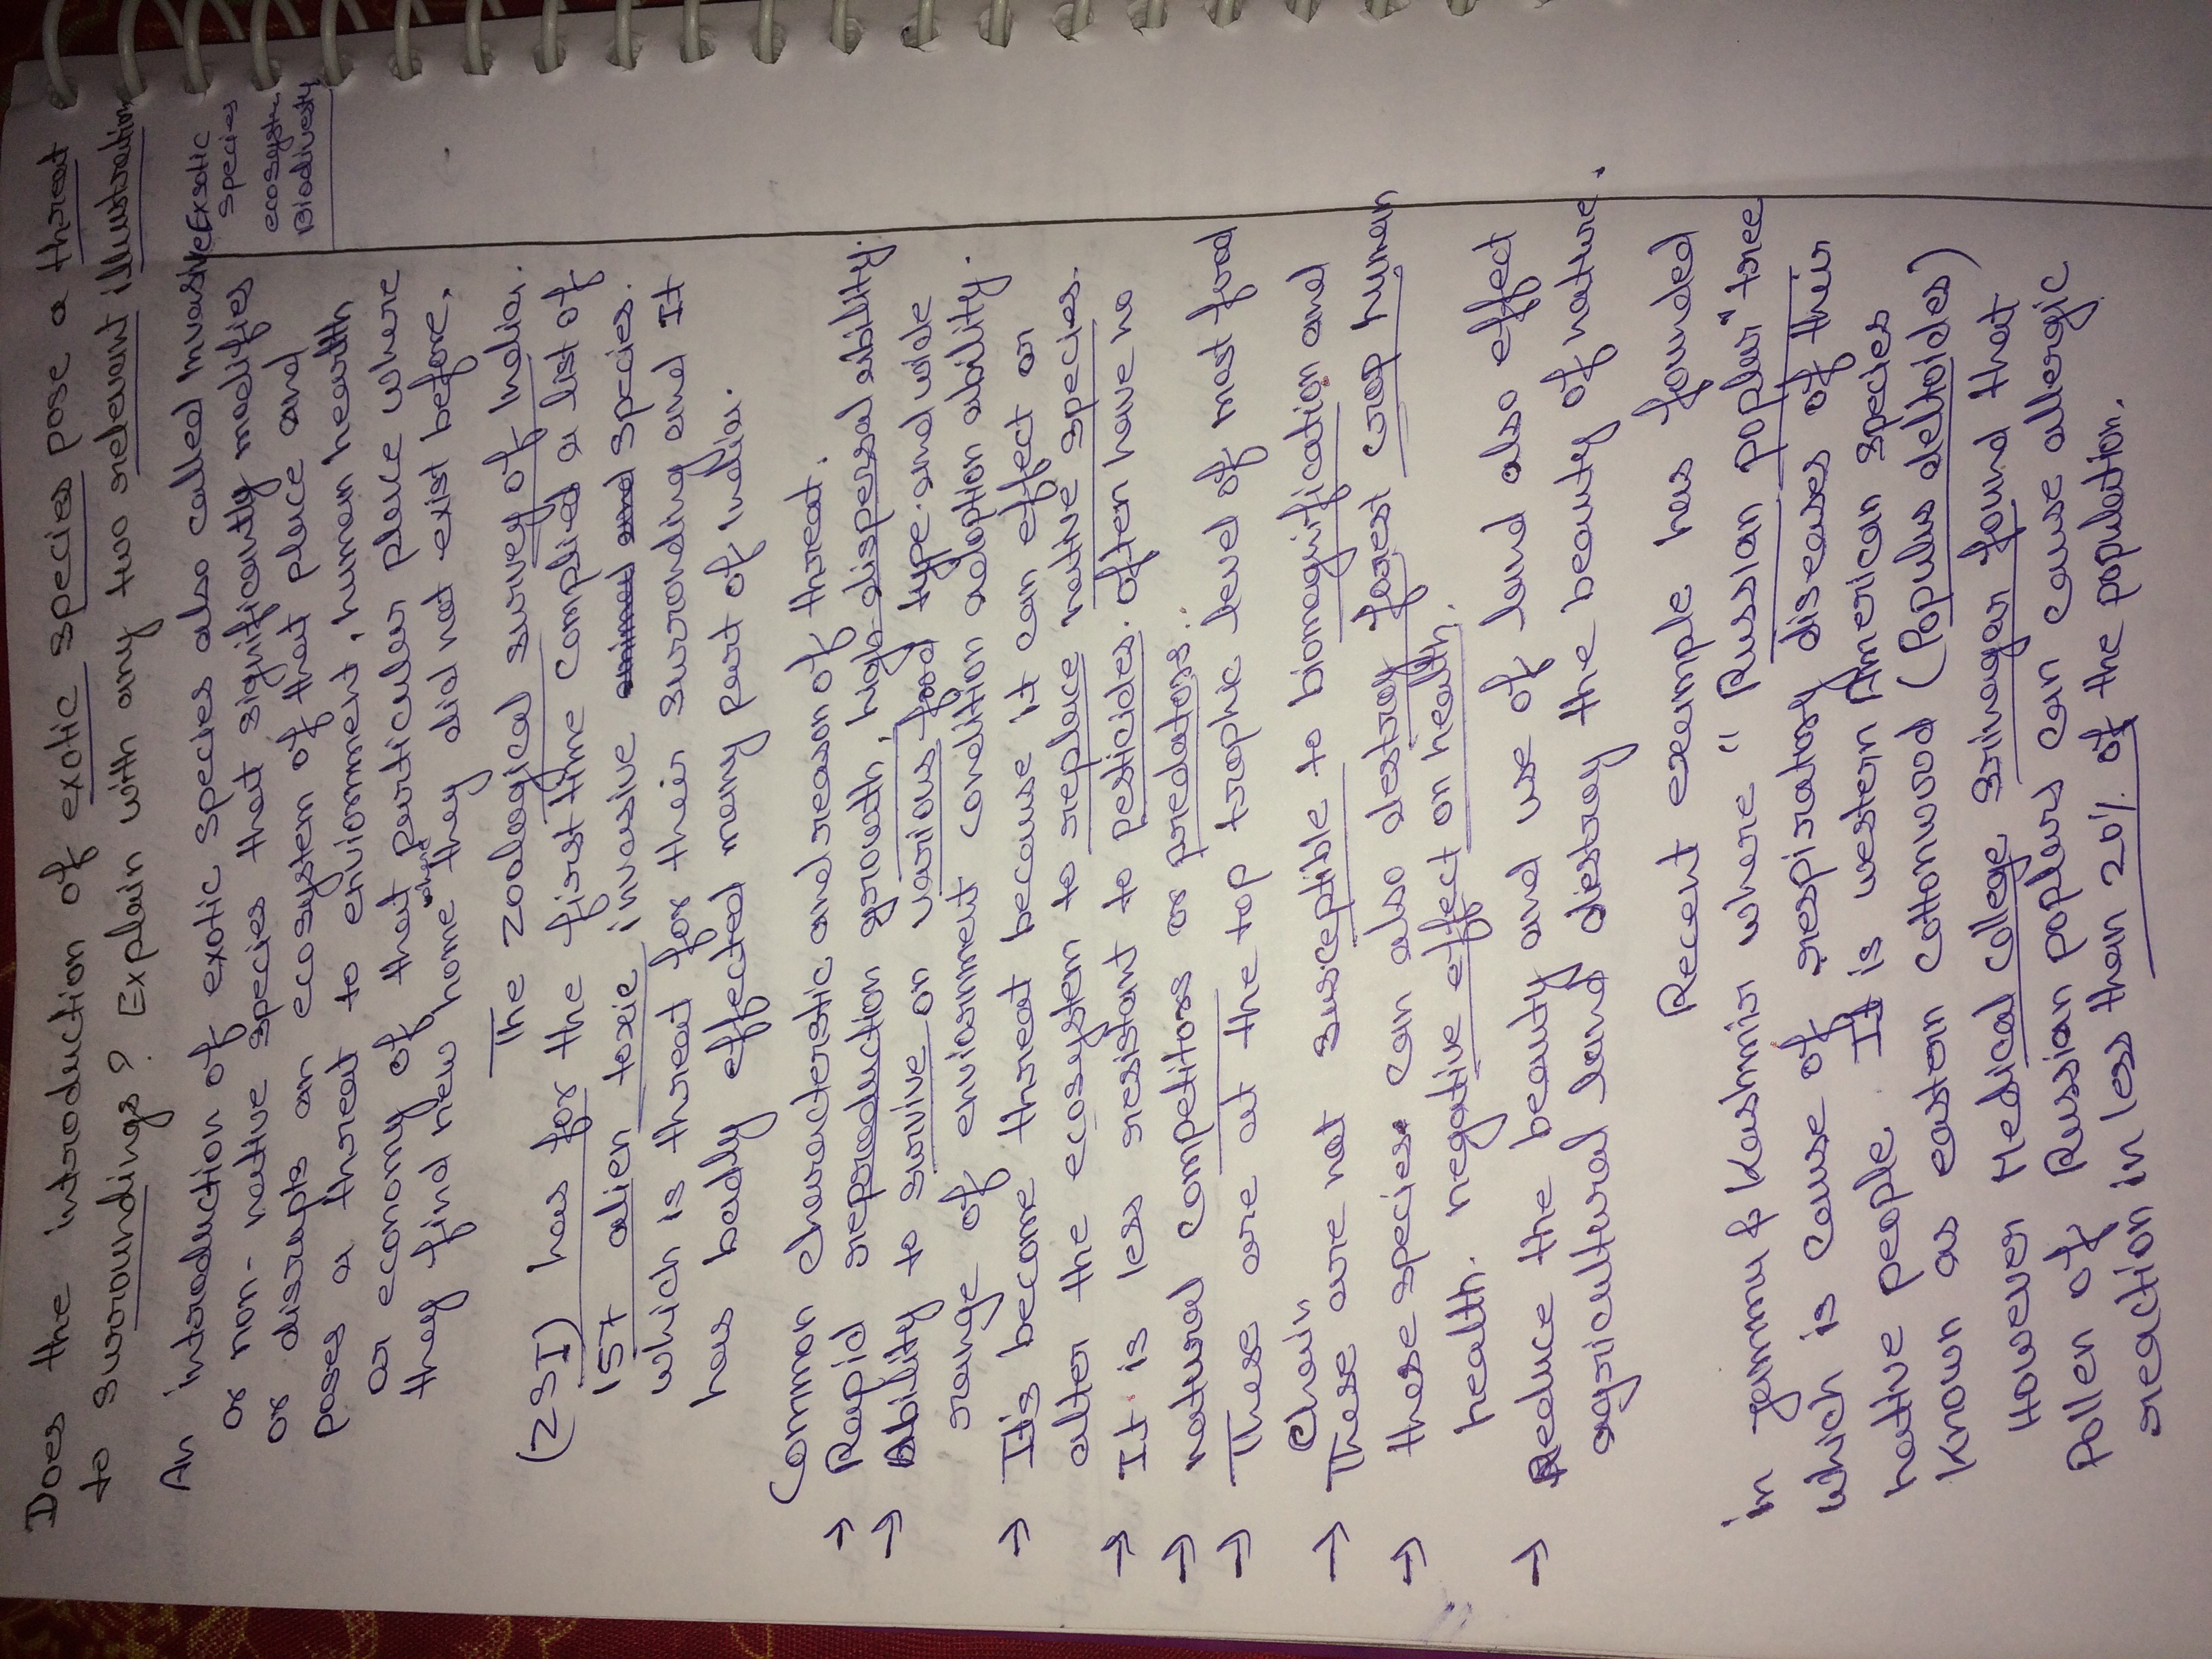 Does the introduction of exotic species pose a threat
to surroundings? Explain with any two relevant illustration
Exsotic
species
ecosystm
Biodivesty
An introduction of exotic species also called Invasive
or non-native species that significantly modifies
or disrupts an ecosystem of that place and
poses a threat to enviornment, human health
or economy of that perticular place where
they find new home where they did not exist before.
The zoological survey of India.
(ZSI) has for the first time complied a list of
157 alien toxic invasive animal and species.
which is threat for their surronding and It
has badly effected many part of India.
Common characterstic and reason of threat.
→ Rapid reproduction growth, high dispersal ability.
→ Ability to surive on various food type and wide
range of enviornment condition adoption ability.
→ It's become threat because it can effect or
alter the ecosystem to replace native species.
→ It is less resistant to pesticides. often have no
→ natural competitors or predators.
→ These are at the top trophic level of most food
chain
→ These are not susceptible to biomagnification and
→ these species can also destroy forest crop human
health. negative effect on health.
→ Reduce the beauty and use of land also effect
agricultural land distroy the beauty of nature.
Recent example has founded
in jammu & Kashmir where "Russian poplar" tree
which is cause of respiratory diseases of their
native people. It is western American species
known as eastern cottonwood (Populus deltoides)
However Medical college srinagar found that
Pollen of Russian poplars can cause allergic
reaction in less than 20% of the population.